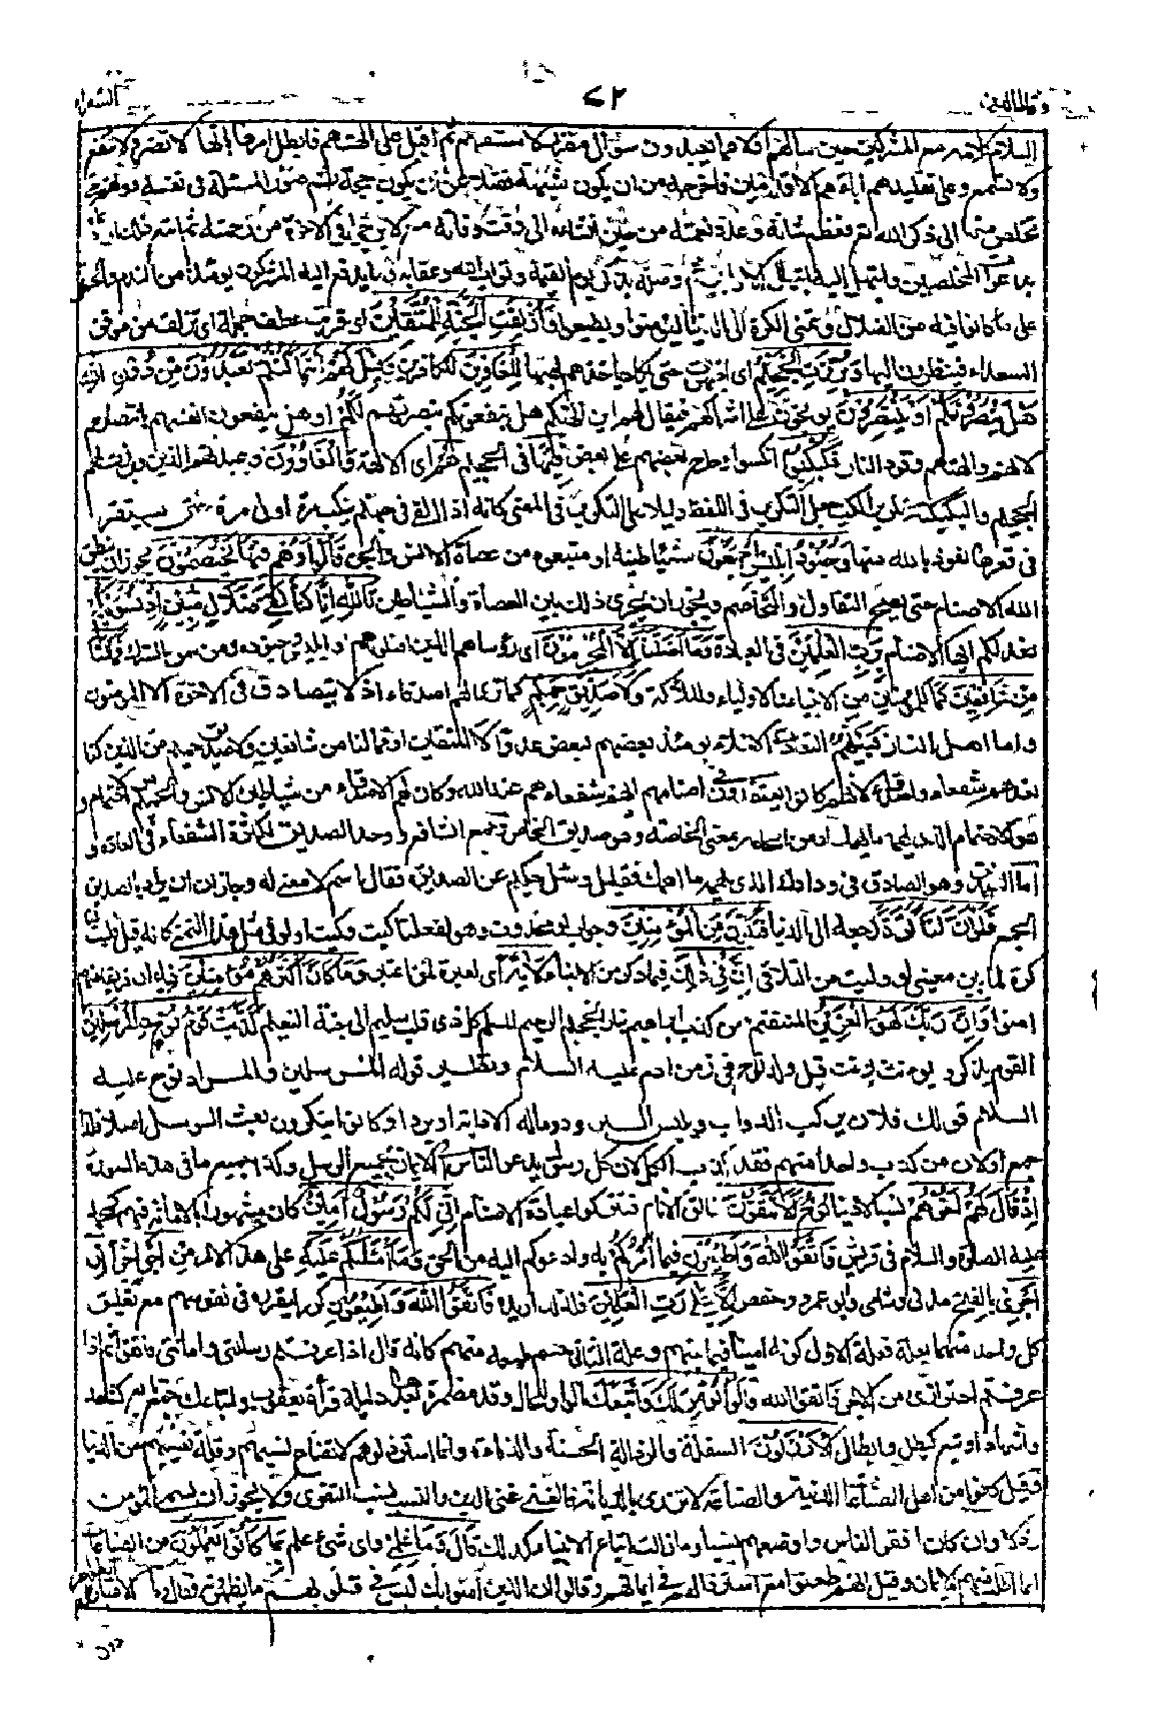 وقال الذين
٧٢
الشعراء
السلام مع المشركين حين سألهم أولا عما يعبدون سؤال مقرر لا مستفهم ثم أقبل على آلهتهم فأبطل أمرها بأنها لا تضر ولا تنفع
ولا تسمع وعلى تقليدهم آباءهم الأقدمين فأخرجه من أن يكون شبهة فضلا عن أن يكون حجة ثم صور المسئلة في نفسه دونهم حتى
تخلص منها إلى ذكر الله ثم فعظم شأنه وعدد نعمته من حين إنشائه إلى وقت وفاته مع ما يرجى في الآخرة من رحمته ثم أتبع ذلك أن دعا
بدعوات المخلصين وابتهل إليه ابتهال الأوابين ثم وصله بذكر يوم القيمة وثواب الله وعقابه وما يدفع إليه المشركون يومئذ من الندم والحسرة
على ما كانوا فيه من الضلال وتمني الكرة إلى الدنيا ليؤمنوا ويطيعوا وأزلفت الجنة للمتقين أي قربت عطف جملة أي تزلف من موقف
السعداء فينظرون إليها وبرزت الجحيم أي أظهرت حتى يكاد يأخذهم لهبها للغاوين للكافرين وقيل لهم أينما كنتم تعبدون من دون الله
هل ينصرونكم أو ينتصرون يوبخون على إشراكهم فيقال لهم أين آلهتكم هل ينفعونكم بنصرتهم لكم أو هل ينفعون أنفسهم بانتصارهم
لأنهم وآلهتهم وقود النار فكبكبوا أنكسوا وطرح بعضهم على بعض فيها في الجحيم هم أي الآلهة والغاوون وعبدتهم الذين برزت لهم
الجحيم والكبكبة تكرير الكب جعل التكرير في اللفظ دليلا على التكرير في المعنى كأنه إذا ألقي في جهنم ينكب مرة أولى مرة حتى يستقر
في قعرها نعوذ بالله منها وجنود إبليس أجمعون شياطينه أو متبعوه من عصاة الإنس والجن قالوا وهم فيها يختصمون يجوز أن ينطق
الله الأصنام حتى يصح التقاول والتخاصم ويجوز أن يجري ذلك بين العصاة والشياطين تالله إن كنا لفي ضلال مبين إذ نسويكم
نعدلكم أيها الأصنام برب العلمين في العبادة وما أضلنا إلا المجرمون أي رؤساؤهم الذين أضلوهم أو إبليس وجنوده ومن سن الشرك فما لنا
من شافعين كما للمؤمنين من الأنبياء والأولياء والملائكة ولا صديق حميم كما نرى لهم أصدقاء إذ لا يتصادق في الآخرة إلا المؤمنون
وأما أهل النار فبينهم التعادي الأخلاء يومئذ بعضهم لبعض عدو إلا المتقين أو فما لنا من شافعين ولا صديق حميم من الذين كنا
نعدهم شفعاء وأصدقاء لأنهم كانوا يعتقدون في أصنامهم أنهم شفعاؤهم عند الله وكان لهم الأصدقاء من شياطين الإنس والحميم من الاحتمام و
هو الاهتمام الذي يهمه ما يهمك أو من الحامة بمعنى الخاصة وهو الصديق الخاص وجمع الشافع ووحد الصديق لكثرة الشفعاء في العادة و
أما الصديق وهو الصادق في ودادك الذي يهمه ما أهمك فقليل وسئل حكيم عن الصديق فقال اسم لا معنى له وجاز أن يراد بالصديق
الجمع فلو أن لنا كرة رجعة إلى الدنيا فنكون من المؤمنين وجواب لو محذوف وهو لفعلنا كيت وكيت أو لو في مثل هذا للتمني كأنه قيل فليت لنا
كرة لما بين معنى لو وليت من التلاقي إن في ذلك فيما ذكر من الأنباء لآية أي لعبرة لمن اعتبر وما كان أكثرهم مؤمنين فيه أن فريقا منهم
آمنوا وإن ربك لهو العزيز المنتقم ممن كذب إبراهيم بنار الجحيم الرحيم المسلم كل ذي قلب سليم إلى جنة النعيم كذبت قوم نوح المرسلين
القوم يذكر ويؤنث قيل ولد نوح في زمن آدم عليه السلام ونظير قوله المرسلين والمراد نوح عليه
السلام قولك فلان يركب الدواب ويلبس البرود وما له إلا دابة أو برد أو كانوا ينكرون بعث الرسل أصلا فلذا
جمع أو لأن من كذب واحدا منهم فقد كذب الكل لأن كل رسول يدعو الناس إلى الإيمان بجميع الرسل وكذا جميع ما في هذه السورة
إذ قال لهم أخوهم نسبا لا دينا نوح ألا تتقون خالق الأنام فتتركوا عبادة الأصنام إني لكم رسول أمين كان مشهورا بالأمانة فيهم كمحمد
عليه الصلوة والسلام في قريش فاتقوا الله وأطيعون فيما آمركم به وأدعوكم إليه من الحق وما أسئلكم عليه على هذا الأمر من أجر إن
أجري بالفتح مدني وشامي وأبو عمرو وحفص إلا على رب العلمين فلذلك أريده فاتقوا الله وأطيعون كرره ليقرره في نفوسهم مع تعليق
كل واحد منهما بعلة فعلة الأول كونه أمينا فيما بينهم وعلة الثاني حسم طمعه منهم كأنه قال إذا عرفتم رسالتي وأمانتي فاتقوا الله ثم إذا
عرفتم احترازي من الأجر فاتقوا الله قالوا أنؤمن لك واتبعك الواو للحال وقد مضمرة بعدها دليله قراءة يعقوب وأتباعك جمع تابع كشاهد
وأشهاد أو تبع كبطل وأبطال الأرذلون السفلة والرذالة الخسة والدناءة وإنما استرذلوهم لاتضاع نسبهم وقلة نصيبهم من الدنيا
وقيل كانوا من أهل الصناعات الدنية والصناعة لا تزري بالديانة فالغنى غنى الدين والنسب نسب التقوى ولا يجوز أن يسمى المؤمن
رذلا وإن كان أفقر الناس وأوضعهم نسبا وما زالت أتباع الأنبياء كذلك قال وما علمي وأي شيء علمي بما كانوا يعملون من الصناعات
إنما أطلب منهم الإيمان وقيل إنهم طعنوا مع استرذالهم في إيمانهم وقالوا إن الذين آمنوا بك ليس في قلوبهم ما يظهرونه فقال ما علي إلا اعتبار الظواهر
دون